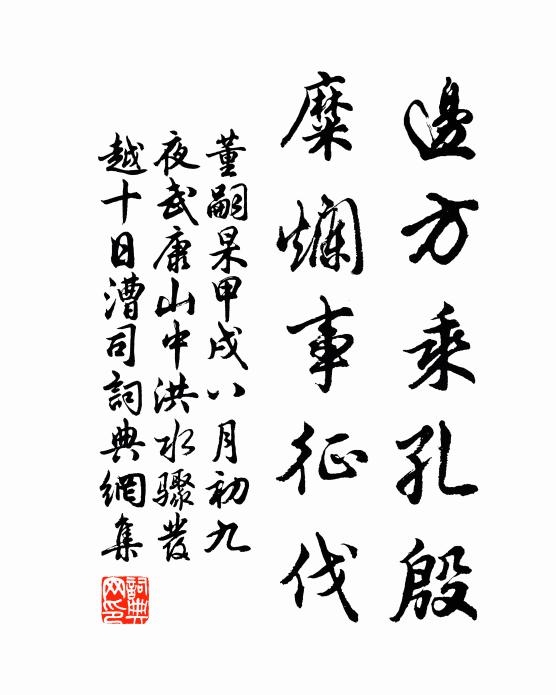 邊方乘孔殷
糜爛事征伐
董嗣杲甲戌八月初九
夜武康山中洪水驟發
越十日漕司詞典網集
詞典
网印